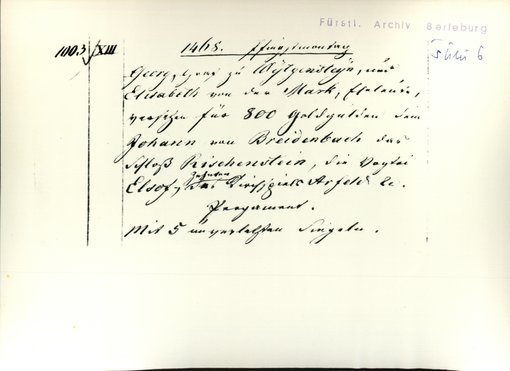 Fürstl. Archiv Berleburg
1003 XIII
1468. Pfingstmontag
Juni 6
Georg, Graf zu Wytgenstein, und
Elisabeth von der Mark, Eheleute,
versetzen für 800 Goldgulden dem
Johann von Breidenbach das
Schloß Richenstein, die Vogtei
Elsof, Zehnten des Kirchspiels Arfeld &c.
Pergament.
Mit 5 unverletzten Siegeln.